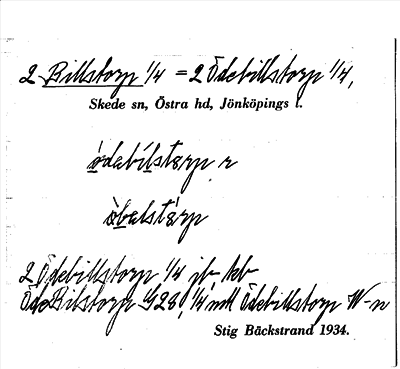 2 Billstorp 1/4 = 2 Ödebillstorp 1/4,
Skede sn, Östra hd, Jönköpings l.
ödebilstorp r
òbalstórp
2 Ödebillstorp 1/4 jb, kb
ÖdeBilstorp 1/4 mtl Ödebillstorp W-n
Stig Bäckstrand 1934.